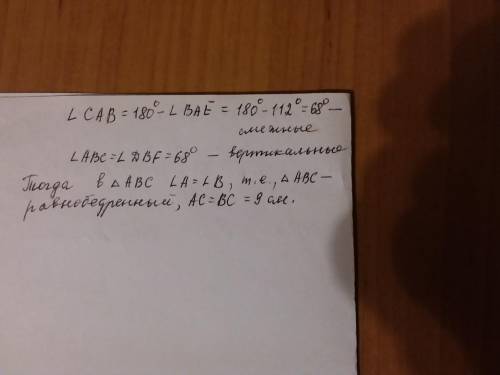 ∠CAB = 180° - ∠BAE = 180° - 112° = 68° —
смежные
∠ABC = ∠DBF = 68° — вертикальные
Тогда в △ABC ∠A = ∠B, т.е., △ABC —
равнобедренный, AC = BC = 9 см.